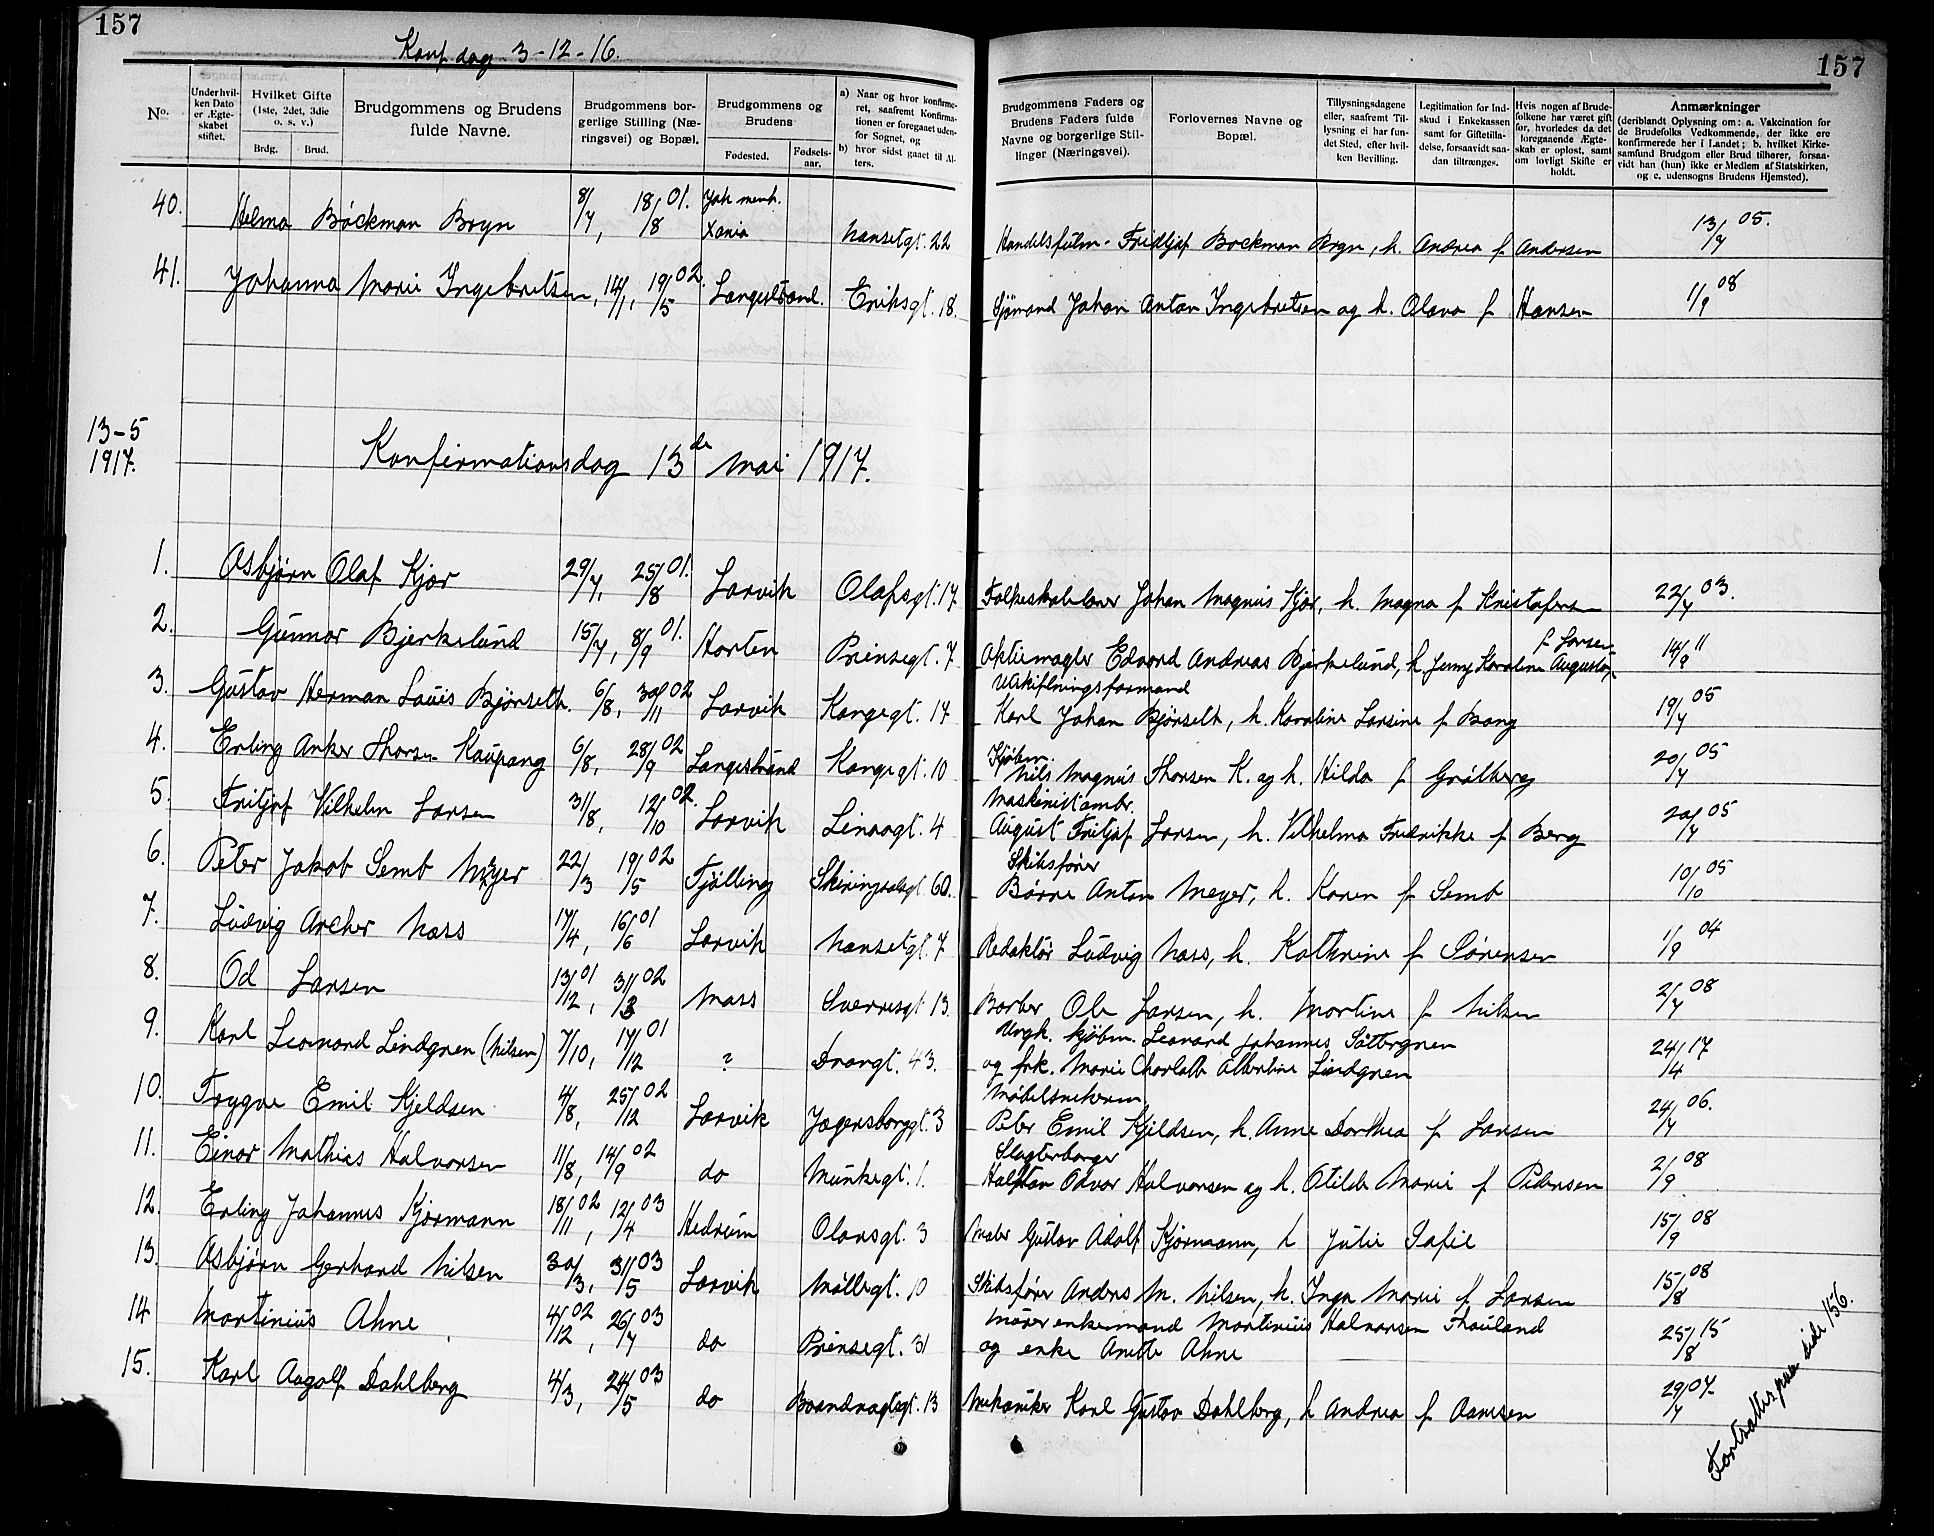 157
157
Konf. dag 3-12-16.
No.
Under hvilken Dato er Ægteskabet stiftet.
Hvilket Gifte (1ste, 2det, 3die o. s. v.)
Brdg. Brud.
Brudgommens og Brudens fulde Navne.
Brudgommens borgerlige Stilling (Næringsvei) og Bopæl.
Brudgommens og Brudens
Fødested. Fødselsaar.
a) Naar og hvor konfirmeret, saafremt Konfirmationen er foregaaet udenfor Sognet, og
b) hvor sidst gaaet til Alters.
Brudgommens Faders og Brudens Faders fulde Navne og borgerlige Stillinger (Næringsvei).
Forlovernes Navne og Bopæl.
Tillysningsdagene eller, saafremt Tillysning ei har fundet Sted, efter hvilken Bevilling.
Legitimation for Indskud i Enkekassen samt for Giftetilladelse, forsaavidt saadan tiltrænges.
Hvis nogen af Brudefolkene har været gift før, hvorledes da det foregaaende Ægteskab er opløst, samt om lovligt Skifte er holdt.
Anmærkninger
(deriblandt Oplysning om: a. Vakcination for de Brudefolks Vedkommende, der ikke ere konfirmerede her i Landet; b. hvilket Kirkesamfund Brudgom eller Brud tilhører, forsaavidt han (hun) ikke er Medlem af Statskirken, og c. udensogns Brudens Hjemsted).
40. Helma Böckman Bryn 8/7, 18/8 01. Joh menh. Xania Nansetgt. 22 Handelsfuldm. Fridtjof Bockman Bryn, h. Andrea f Andersen 13/7 05.
41. Johanna Marie Ingebretsen, 14/1, 19/5 02. Langestrand. Eriksgt. 18. Sjömand Johan Anton Ingebretsen og h. Olava f Hansen 1/9 08
13-5 1917.
Konfirmationsdag 13de Mai 1917.
1. Asbjørn Olaf Kjær 29/7, 25/8 01. Larvik Olafsgt. 17 Folkeskolelærer Johan Magnus Kjær, h. Magna f Kristofersen 22/7 03.
2. Gunnar Bjerkelund 15/7, 8/9 01. Horten Prinsegt. 7 Aktiemægler Edvard Andreas Bjerkelund, h Jenny Karoline Augusta f. Larsen 14/9 11
3. Gustav Herman Louis Bjönselt. 6/8, 30/11 02 Larvik Kongegt. 17 Udskiftningsformand
Karl Johan Bjønselt, h. Karoline Larsine f Bang 19/7 05
4. Erling Anker Thorsen Kaupang 6/8, 28/9 02 Langestrand Kongegt. 10 Kjöbm.
Nils Magnus Thorsen K. og h. Hilda f Gråtberg 20/7 05
5. Fritjof Vilhelm Larsen 31/8, 12/10 02. Larvik Linaagt. 4 Maskinistambr.
August Fritjof Larsen, h. Vilhelma Fredrikke f Berg 20/7 05
6. Peter Jakob Semb Meyer 22/3 19/5 02 Tjölling Skiringssalsgt. 60. Skibsfører
Børre Anton Meyer, h. Karen f Semb 10/10 05
7. Ludvig Archer Næss 17/4, 16/6 01 Larvik Nansetgt. 7 Redaktör Ludvig Næss, h. Kathrine f Sörensen 1/9 04
8. Od Larsen 13/12 01, 31/3 02 Moss Sverresgt 13. Barber Ole Larsen, h. Martine f Nilsen 2/7 08
9. Karl Leonard Lindgren (Nilsen) 7/10, 17/12 01 ? Dronngt. 43. Ungk. kjöbm. Leonard Johannes Sätbrgnen
og frk. Marie Charlotte Albertine Lindgren 24/4 17
10. Trygve Emil Kjeldsen 4/8, 25/12 02 Larvik Jegersborggt. 3 Möbelsnekkerm
Peter Emil Kjeldsen, h. Anne Dorthea f Larsen 24/7 06.
11. Einar Mathias Halvorsen 11/8, 14/9 02 do Munkegt. 1. Slagterborger
Halfdan Odvar Halvorsen og h. Otilde Marie f Pedersen 2/9 08
12. Erling Johannes Kjørmann 18/11 02, 12/4 03 Hedrum Olavsgt. 3 Maler Gustav Adolf Kjørmann, h Julie Sofie 15/9 08
13. Asbjørn Gerhard Nilsen 30/3, 31/5 03 Larvik Möllegt. 10 Skibsfører Anders M. Nilsen, h. Inga Marie f Larsen 15/8 08
14 Martinius Ahne 4/12 02, 26/7 03 do Prinsegt. 31 Murer enkemand Martinius Halvorsen Thauland
og enke Anette Ahne 25/8 15
15. Karl Aagolf Dahlberg 4/3, 24/5 03 do Brandvagtsgt. 13 Mekaniker Karl Gustav Dahlberg, h Andrea f Aamsen 29/7 07
Fortsættes paa side 156.